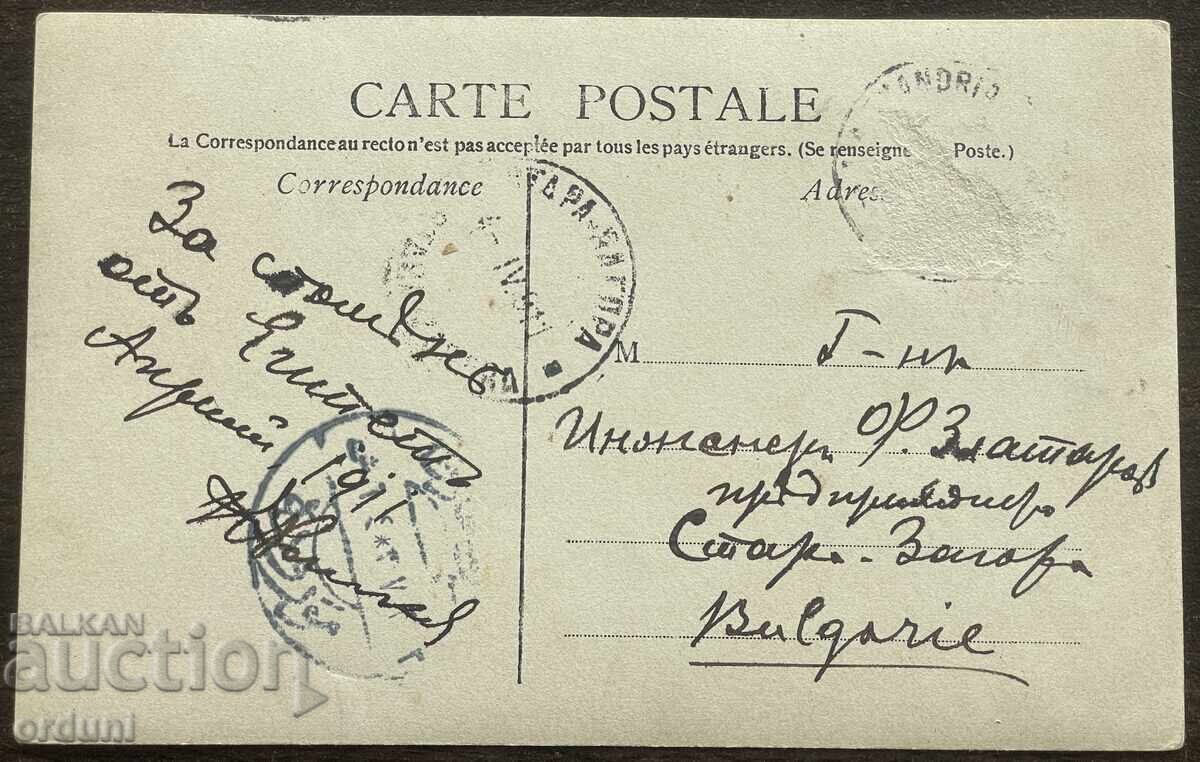 CARTE POSTALE
La Correspondance au recto n'est pas acceptée par tous les pays étrangers. (Se renseigne Poste.)
Correspondance
Adres
ANDRI
За споменъ
отъ Египетъ
Априлий 1911
M
Г-нъ
Инженеръ Златаровъ
предприемчеръ
Стара-Загора
Bulgarie
IV
BALKAN
auction
orduni